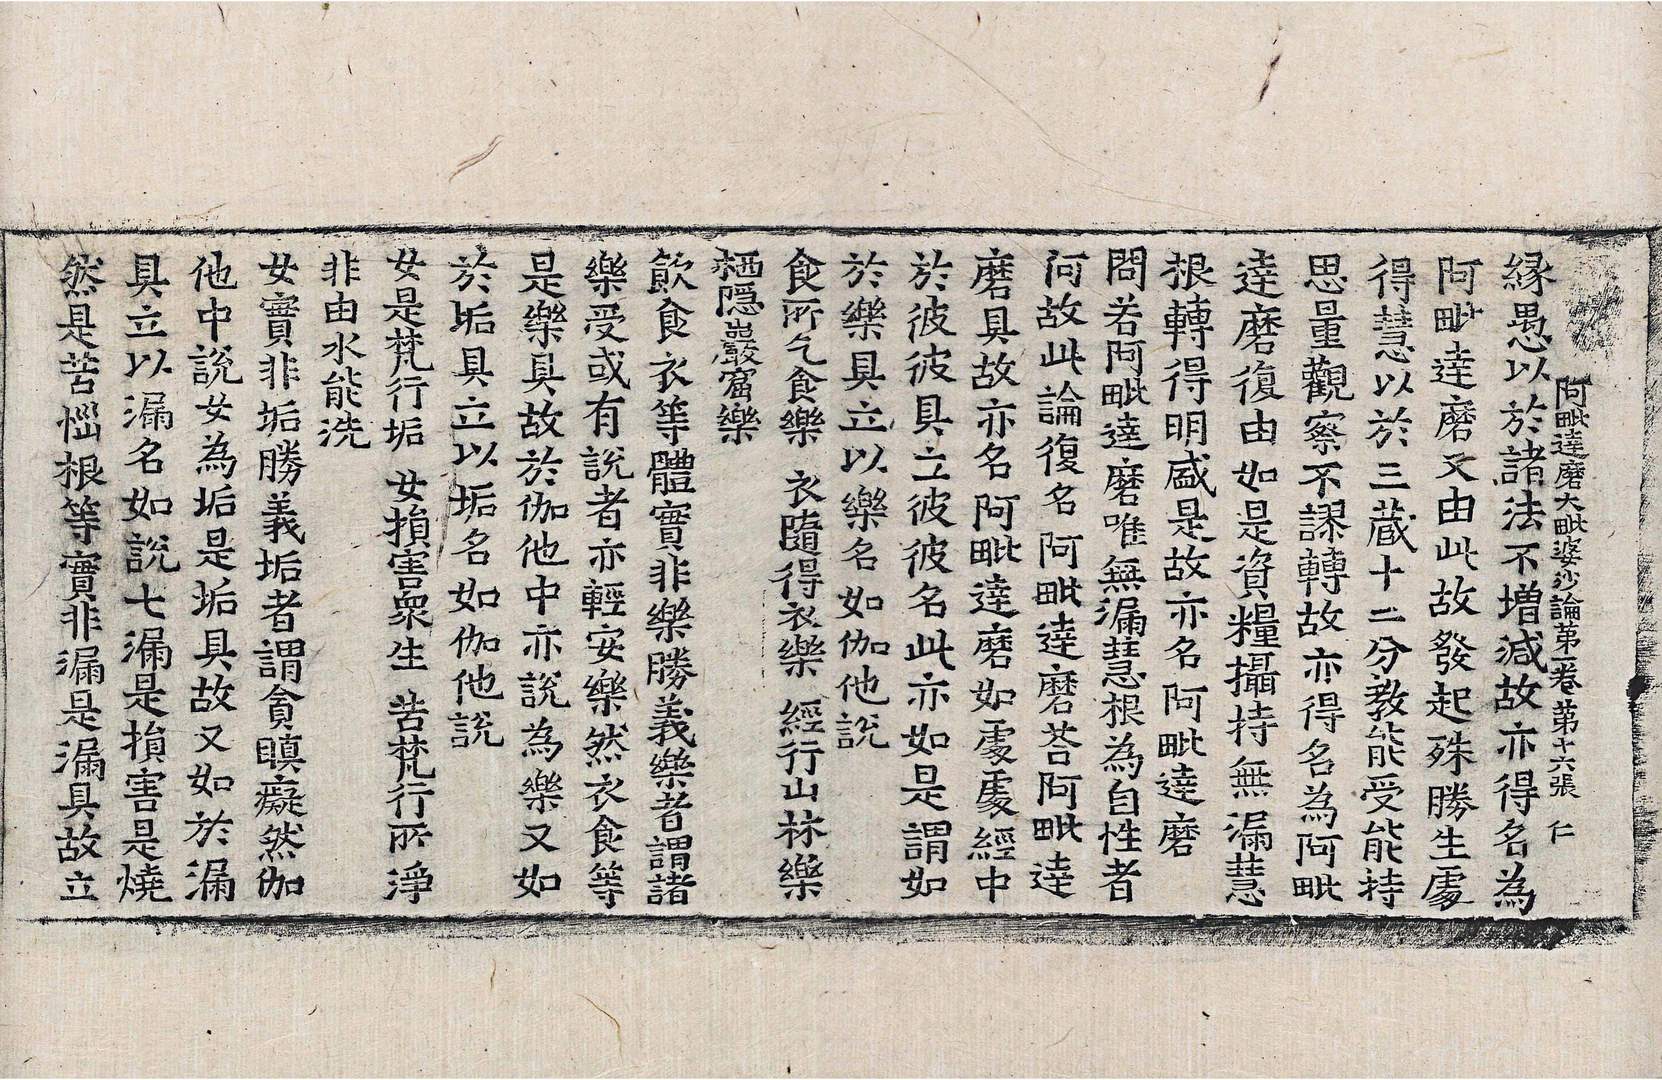 阿毗達磨大毗婆沙論第一卷 第十六張 仁
緣愚以於諸法不增減故亦得名為
阿毗達磨又由此故發起殊勝生處
得慧以於三藏十二分教能受能持
思量觀察不謬轉故亦得名為阿毗
達磨復由如是資糧攝持無漏慧
根轉得明盛是故亦名阿毗達磨
問若阿毗達磨唯無漏慧根為自性者
何故此論復名阿毗達磨荅阿毗達
磨具故亦名阿毗達磨如處處經中
於彼彼具立彼彼名此亦如是謂如
於樂具立以樂名如伽他說
食所乞食樂 衣隨得衣樂 經行山林樂
栖隱巖窟樂
飲食衣等體實非樂勝義樂者謂諸
樂受或有說者亦輕安樂然衣食等
是樂具故於伽他中亦說為樂又如
於垢具立以垢名如伽他說
女是梵行垢 女損害衆生 苦梵行所淨
非由水能洗
女實非垢勝義垢者謂貪瞋癡然伽
他中說女為垢是垢具故又如於漏
具立以漏名如說七漏是損害是燒
然是苦惱根等實非漏是漏具故立